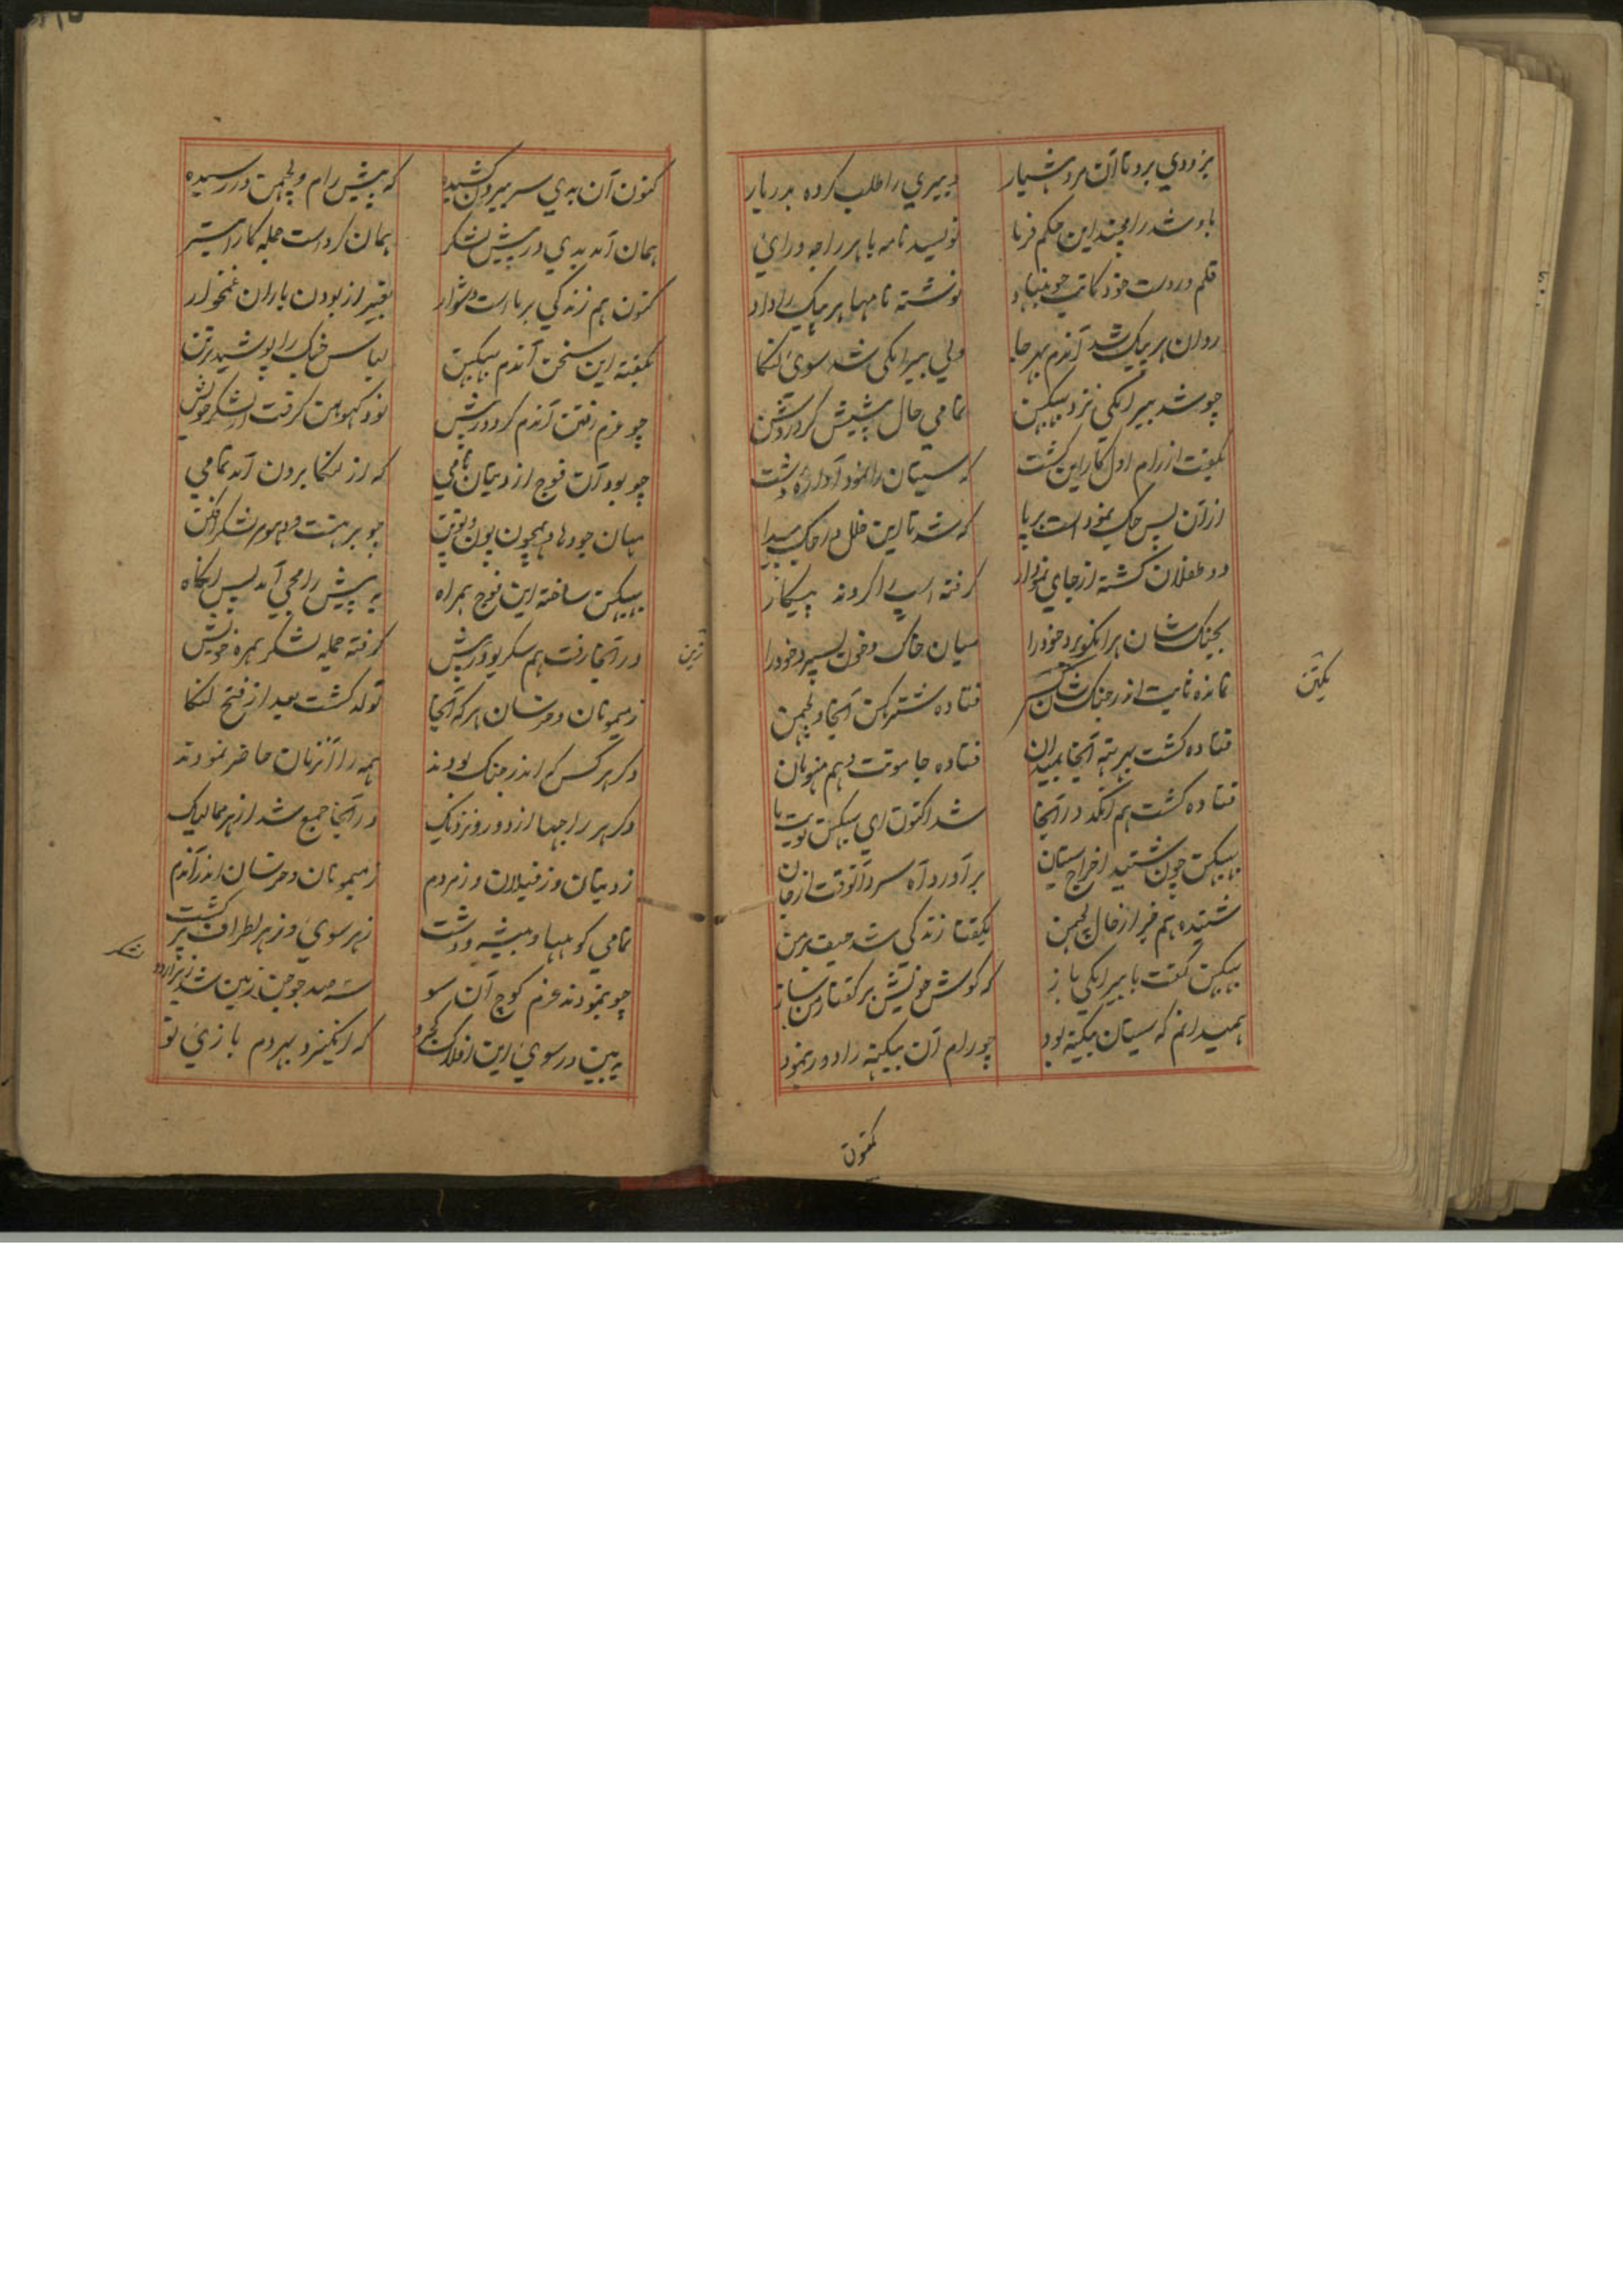 بزودي برد تا آن مرد هشیار دبیري را طلب کرده بدربار
باو شد رامچند این حکم فرما نویسد نامه با هر راجه وراي
قلم در دست خود کاتب چو بنهاد نوشته نامها هر پیک را داد
روان هر پیک شد آندم بهر جا ولي بیرانکي شد سوي لنکا
چو شد بیرانکي نزد ببیکهن تمامي حال پیشش کرد روشن
بگفت از رام اول کار این گشت که سیتان را نمود آواره دشت
از آن پس جگ نموده است بر پا که شد تا این خلل در جگ پیدا
دو طفلان گشته از جاي نمودار گرفته اسپ را کردند پیکار
بجنگ شان برانکو برد خود را میان خاک و خون بسپرد خود را
نمانده ثابت اندر جنگ شان کس فتاده شترگهن آنجا و لچهمن
فتاده گشت بهرته آنجا بمیدان فتاده جاموت و هم هنومان
فتاده گشت هم انگد در آنجا شد اکنون اي ببیکهن نوبت ما
ببیکهن چون شنید اخراج سیتان برآورد آه سرد آنوقت از جان
شنیده هم خبر از حال لچهمن بگفتا زندگي شد حیف بر من
ببیکهن گفت با بیرانکي باز که گوش خویش بر گفتار من ساز
همیدانم که سیتان بیگنه بود چو رام آن بیگنه را دور نمود
یکتن
کنون
کنون آن بدي سر بیرون کشیده که پیش رام و لچهمن در رسیده
همان آمد بدي در پیش لشکر همان کرد است جمله کار ابتر
کنون هم زندگي بر ما است دشوار بغیر از بودن یاران غمخوار
بگفته این سخن آندم ببیکهن لباس جنگ را پوشید بر تن
چو عزم رفتن آندم کرد در پیش نود کهوهن گرفت از لشکر خویش
چو بود آن فوج از دیتان نامي که از لنکا برون آمد تمامي
ببیکهن ساخته این فوج همراه به پیش رامجي آمد پس آنگاه
در آنجا رفت هم سگریو در پیش گرفته جمله لشکر همره خویش
ز میمونان و خرسان هر که آنجا تولد گشت بعد از فتح لنکا
دگر هر کس که اندر جنگ بودند همه را آنزمان حاضر نمودند
دگر هر راجها از دور و نزدیک در آنجا جمع شد از هر ممالیک
ز دیتان و ز فیلان و ز مردم ز میمونان و خرسان اندر آندم
تمامي کوهها و بیشه و دشت ز هر سوي و ز هر اطراف پر گشت
چو نمودند عزم کوچ آن سو سه صد جوجن زمین شد زیر اردو
به بین در سوي این افلاک کجرو که انگیزد بهر دم بازي نو
زمین
لشکر